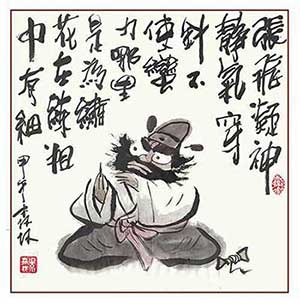 張飛凝神
靜氣穿
針不
使蠻
力哪里
是為繡
花 粗
中有細 甲午 林